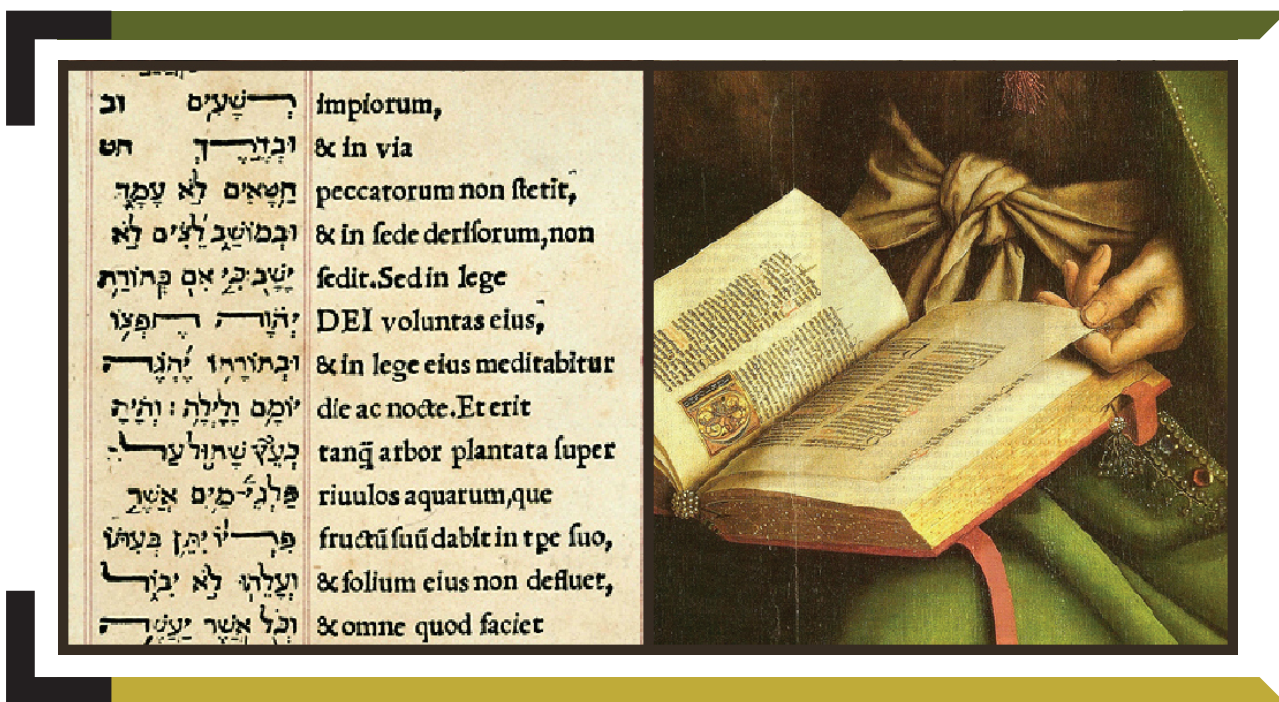 רְשָׁעִים וב
וּבְדֶרֶךְ חט
חַטָּאִים לֹא עָמָד
וּבְמוֹשַׁב לֵצִים לֹא
יָשָׁב: כִּי אִם בְּתוֹרַת
יְהוָה חֶפְצוֹ
וּבְתוֹרָתוֹ יֶהְגֶּה
יוֹמָם וָלָיְלָה: וְהָיָה
כְּעֵץ שָׁתוּל עַל
פַּלְגֵי־מָיִם אֲשֶׁר
פִּרְיוֹ יִתֵּן בְּעִתּוֹ
וְעָלֵהוּ לֹא יִבּוֹל
וְכֹל אֲשֶׁר יַעֲשֶׂה
impiorum,
& in via
peccatorum non ſtetit,
& in ſede deriſorum,non
ſedit.Sed in lege
DEI voluntas eius,
& in lege eius meditabitur
die ac nocte.Et erit
tanq̄ arbor plantata ſuper
riuulos aquarum,que
fructū ſuū dabit in tpe ſuo,
& folium eius non defluet,
& omne quod faciet